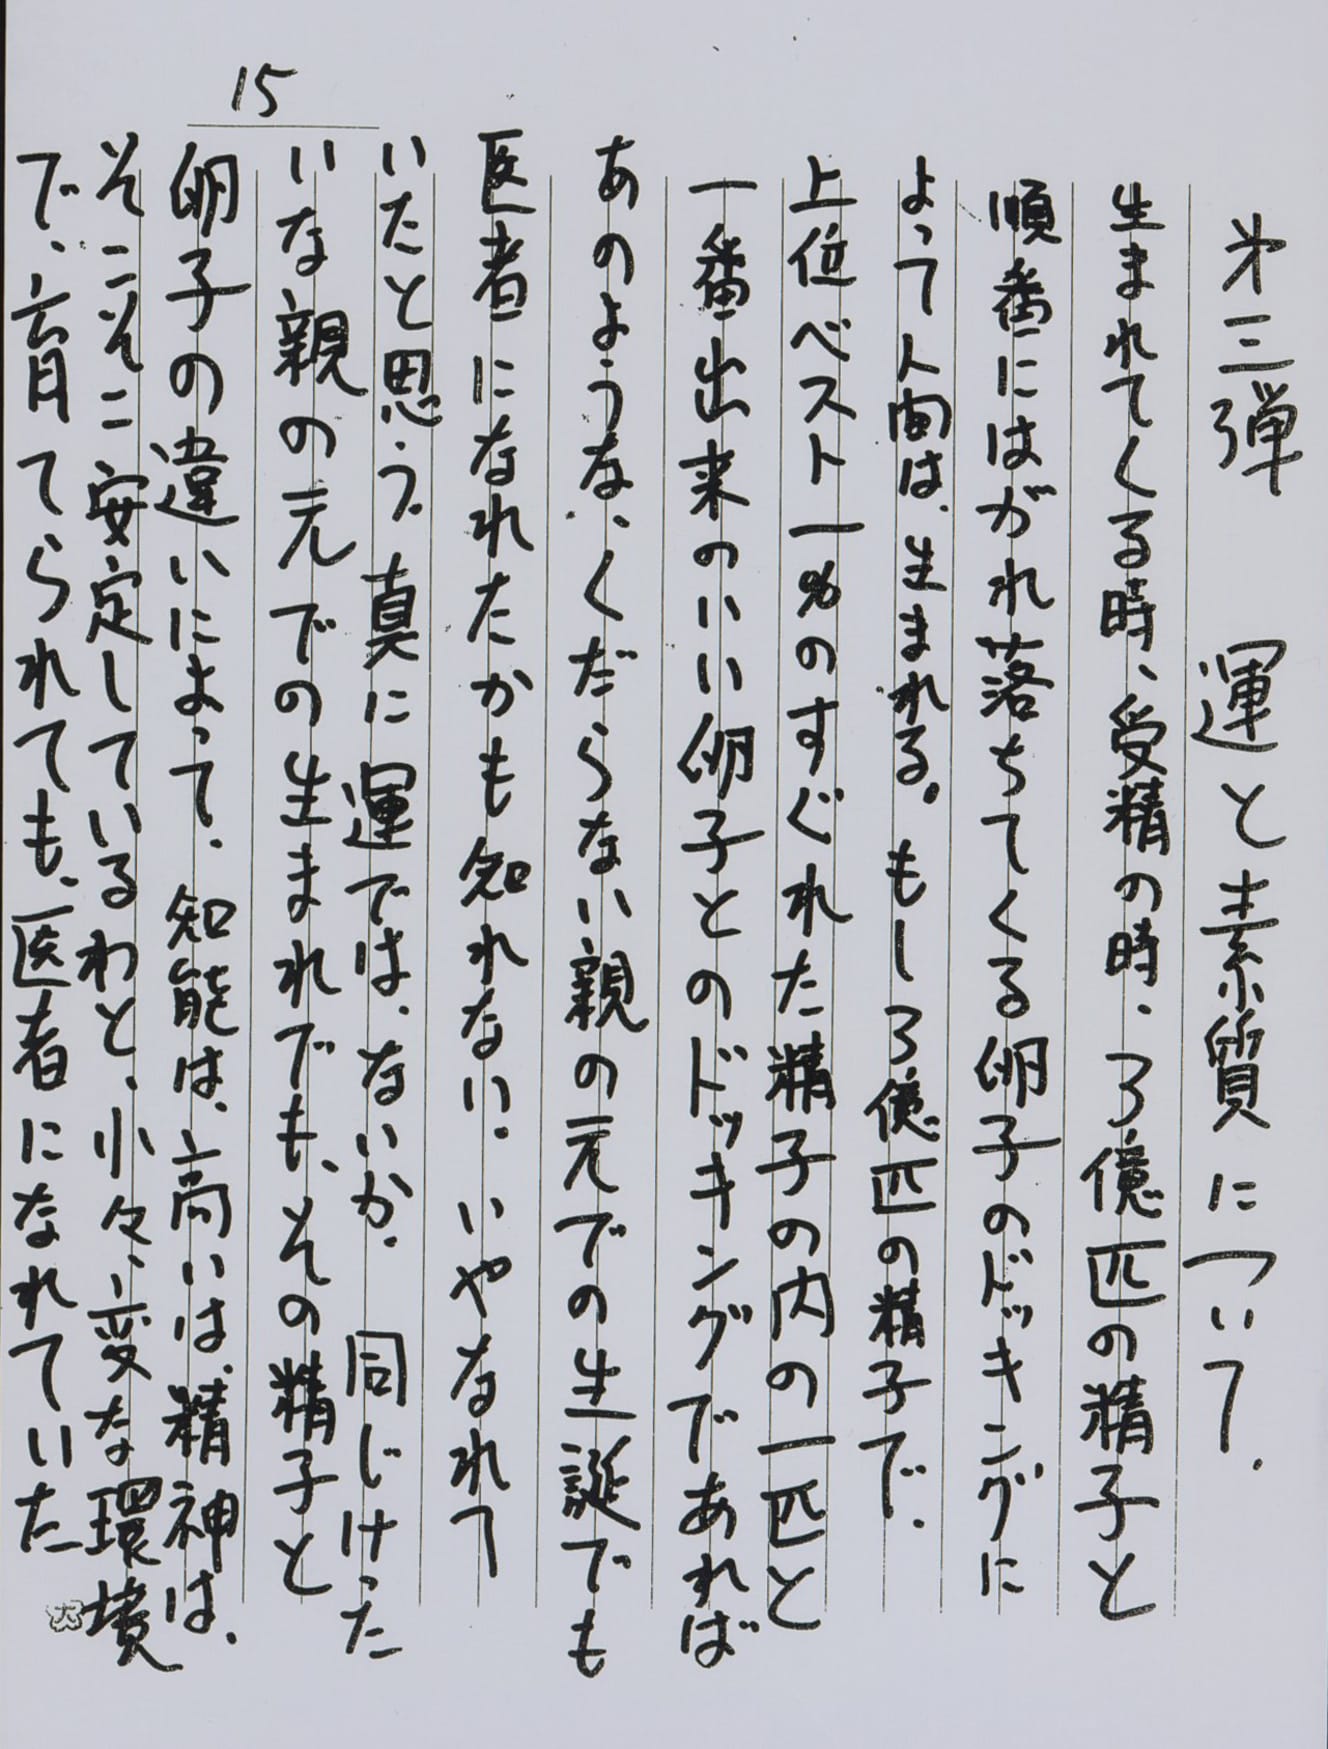 才三弾　運と素質について.
生まれてくる時、受精の時、3億匹の精子と
順番にはがれ落ちてくる卵子のドッキングに
よって人間は、生まれる。もし3億匹の精子で、
上位ベスト一%のすぐれた精子の内の一匹と
一番出来のいい卵子とのドッキングであれば
あのような、くだらない親の元での生誕でも
医者になれたかも知れない。いやなれて
いたと思う。真に運では、ないか。同じけった
いな親の元での生まれでも、その精子と
卵子の違いによって、知能は、高いは、精神は、
そこそこ安定しているわと、小々、変な環境
で、育てられても、医者になれていた
15